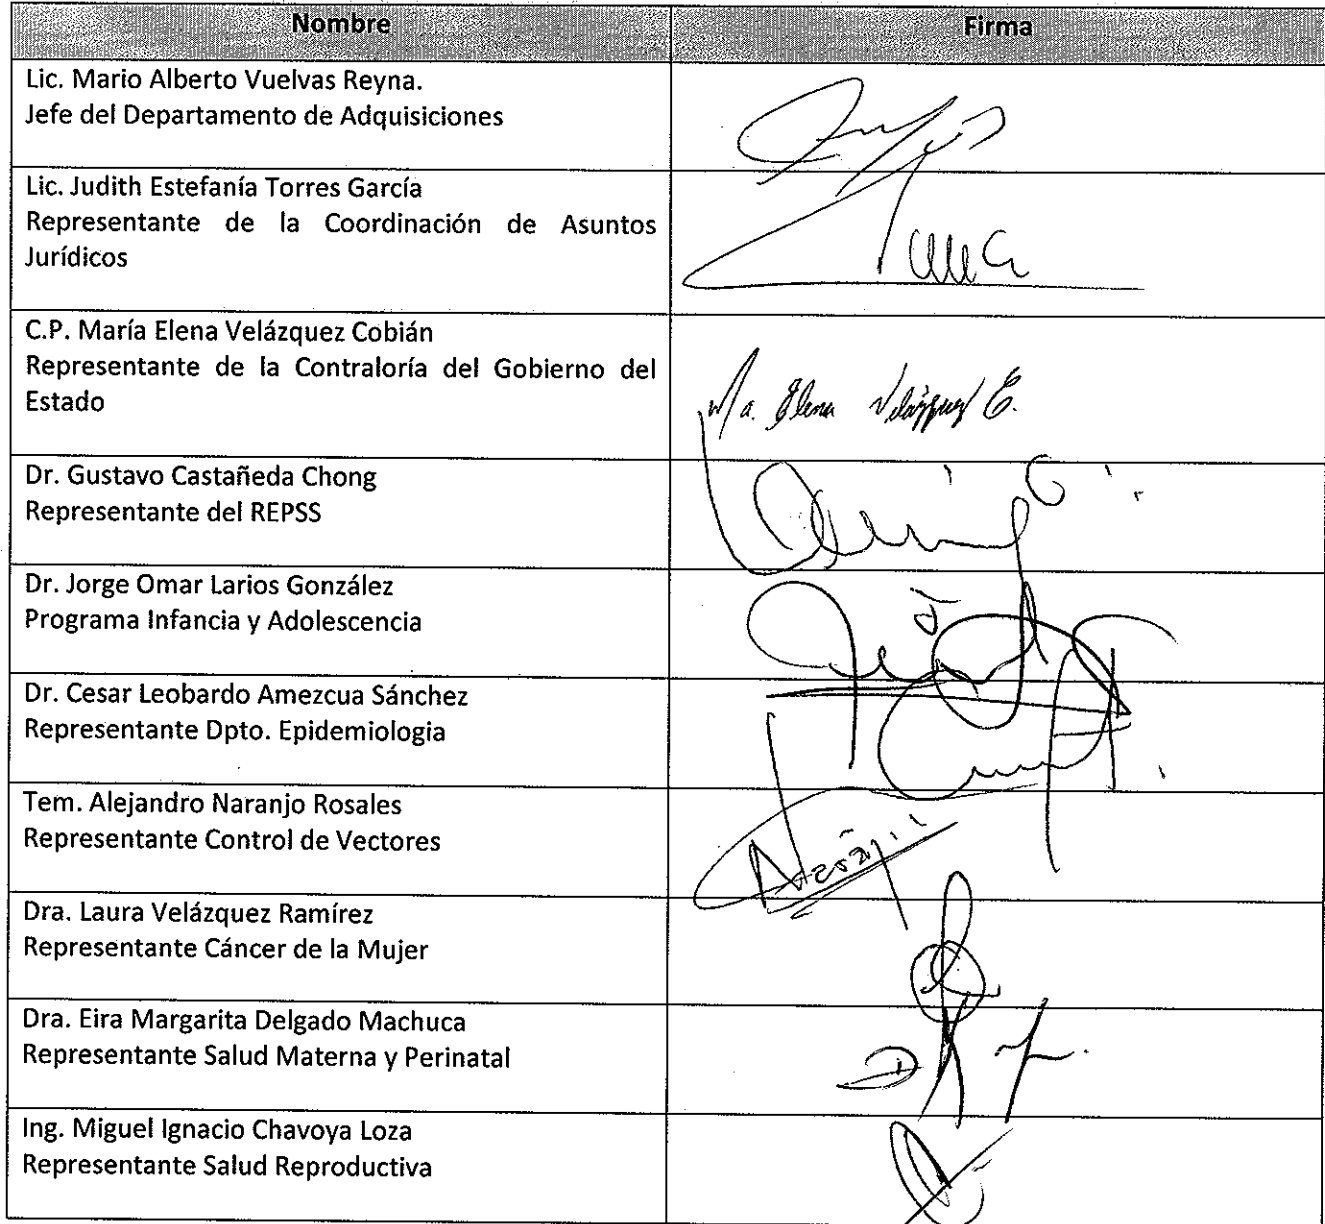 Nombre Firma
Lic. Mario Alberto Vuelvas Reyna.
Jefe del Departamento de Adquisiciones
Lic. Judith Estefanía Torres García
Representante de la Coordinación de Asuntos
Jurídicos
C.P. María Elena Velázquez Cobián
Representante de la Contraloría del Gobierno del
Estado
Ma. Elena Velázquez C.
Dr. Gustavo Castañeda Chong
Representante del REPSS
Dr. Jorge Omar Larios González
Programa Infancia y Adolescencia
Dr. Cesar Leobardo Amezcua Sánchez
Representante Dpto. Epidemiologia
Tem. Alejandro Naranjo Rosales
Representante Control de Vectores
Dra. Laura Velázquez Ramírez
Representante Cáncer de la Mujer
Dra. Eira Margarita Delgado Machuca
Representante Salud Materna y Perinatal
Ing. Miguel Ignacio Chavoya Loza
Representante Salud Reproductiva